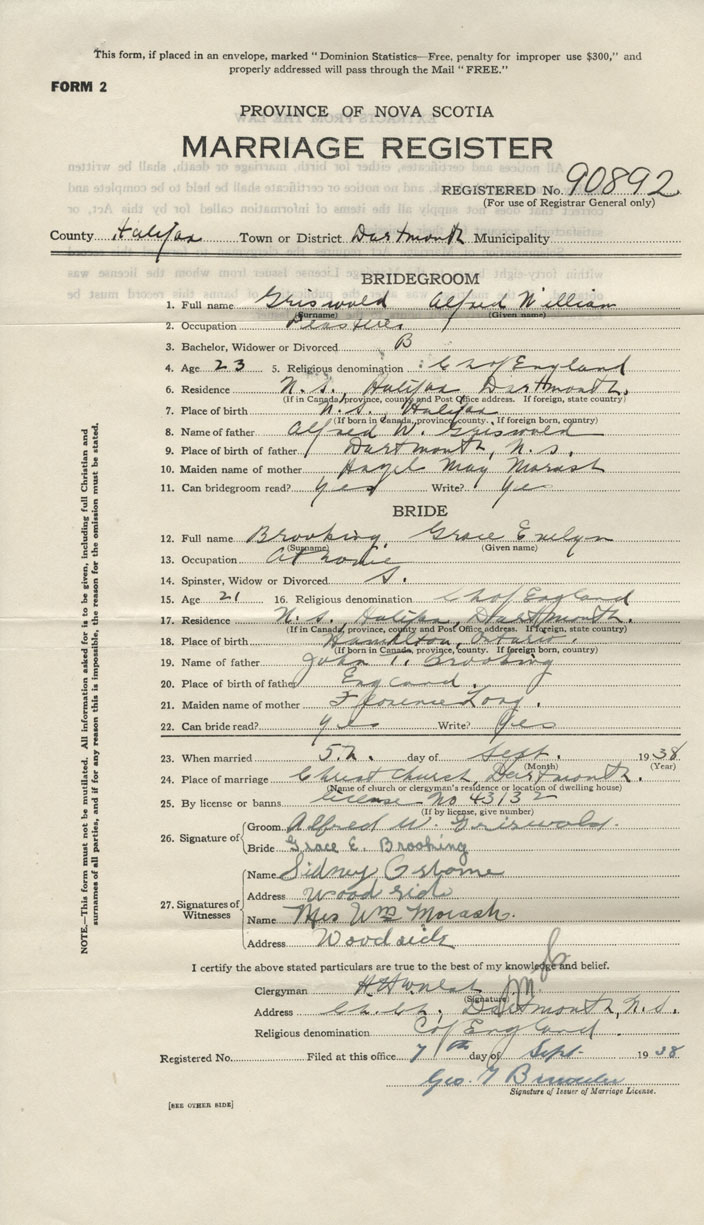 This form, if placed in an envelope, marked "Dominion Statistics—Free, penalty for improper use $300," and
properly addressed will pass through the Mail "FREE."
FORM 2
PROVINCE OF NOVA SCOTIA
MARRIAGE REGISTER
REGISTERED No. 90892
(For use of Registrar General only)
County Halifax Town or District Dartmouth Municipality
BRIDEGROOM
1. Full name Griswold Alfred William
(Surname) (Given name)
2. Occupation
3. Bachelor, Widower or Divorced B
4. Age 23 5. Religious denomination Ch of England
6. Residence N.S., Halifax Dartmouth.
(If in Canada, province, county and Post Office address. If foreign, state country)
7. Place of birth N.S., Halifax
(If born in Canada, province, county. If foreign born, country)
8. Name of father Alfred W. Griswold
9. Place of birth of father Dartmouth, N.S.
10. Maiden name of mother Hazel May Morash
11. Can bridegroom read? yes Write? yes
BRIDE
12. Full name Brooking Grace Evelyn
(Surname) (Given name)
13. Occupation At home
14. Spinster, Widow or Divorced S.
15. Age 21 16. Religious denomination Ch of England
17. Residence N.S. Halifax, Dartmouth.
(If in Canada, province, county and Post Office address. If foreign, state country)
18. Place of birth Hamilton, Ontario
(If born in Canada, province, county. If foreign born, country)
19. Name of father John T. Brooking
20. Place of birth of father England.
21. Maiden name of mother Florence Long.
22. Can bride read? yes Write? yes
23. When married 5th. day of Sept. 1938
(Month) (Year)
24. Place of marriage Christ Church, Dartmouth.
(Name of church or clergyman's residence or location of dwelling house)
25. By license or banns license No 43132
(If by license, give number)
26. Signature of Groom Alfred W. Griswold.
Bride Grace E. Brooking
27. Signatures of Witnesses
Name Sidney Osborne
Address Woodside
Name Mrs Wm Morash.
Address Woodside
I certify the above stated particulars are true to the best of my knowledge and belief.
Clergyman
(Signature)
Address Ch. Ch., Dartmouth, N.S.
Religious denomination C of England
Registered No. Filed at this office 7th day of Sept. 1938
Geo.
Signature of Issuer of Marriage License.
[SEE OTHER SIDE]
NOTE.—This form must not be mutilated. All information asked for is to be given, including full Christian and
surnames of all parties, and if for any reason this is impossible, the reason for the omission must be stated.